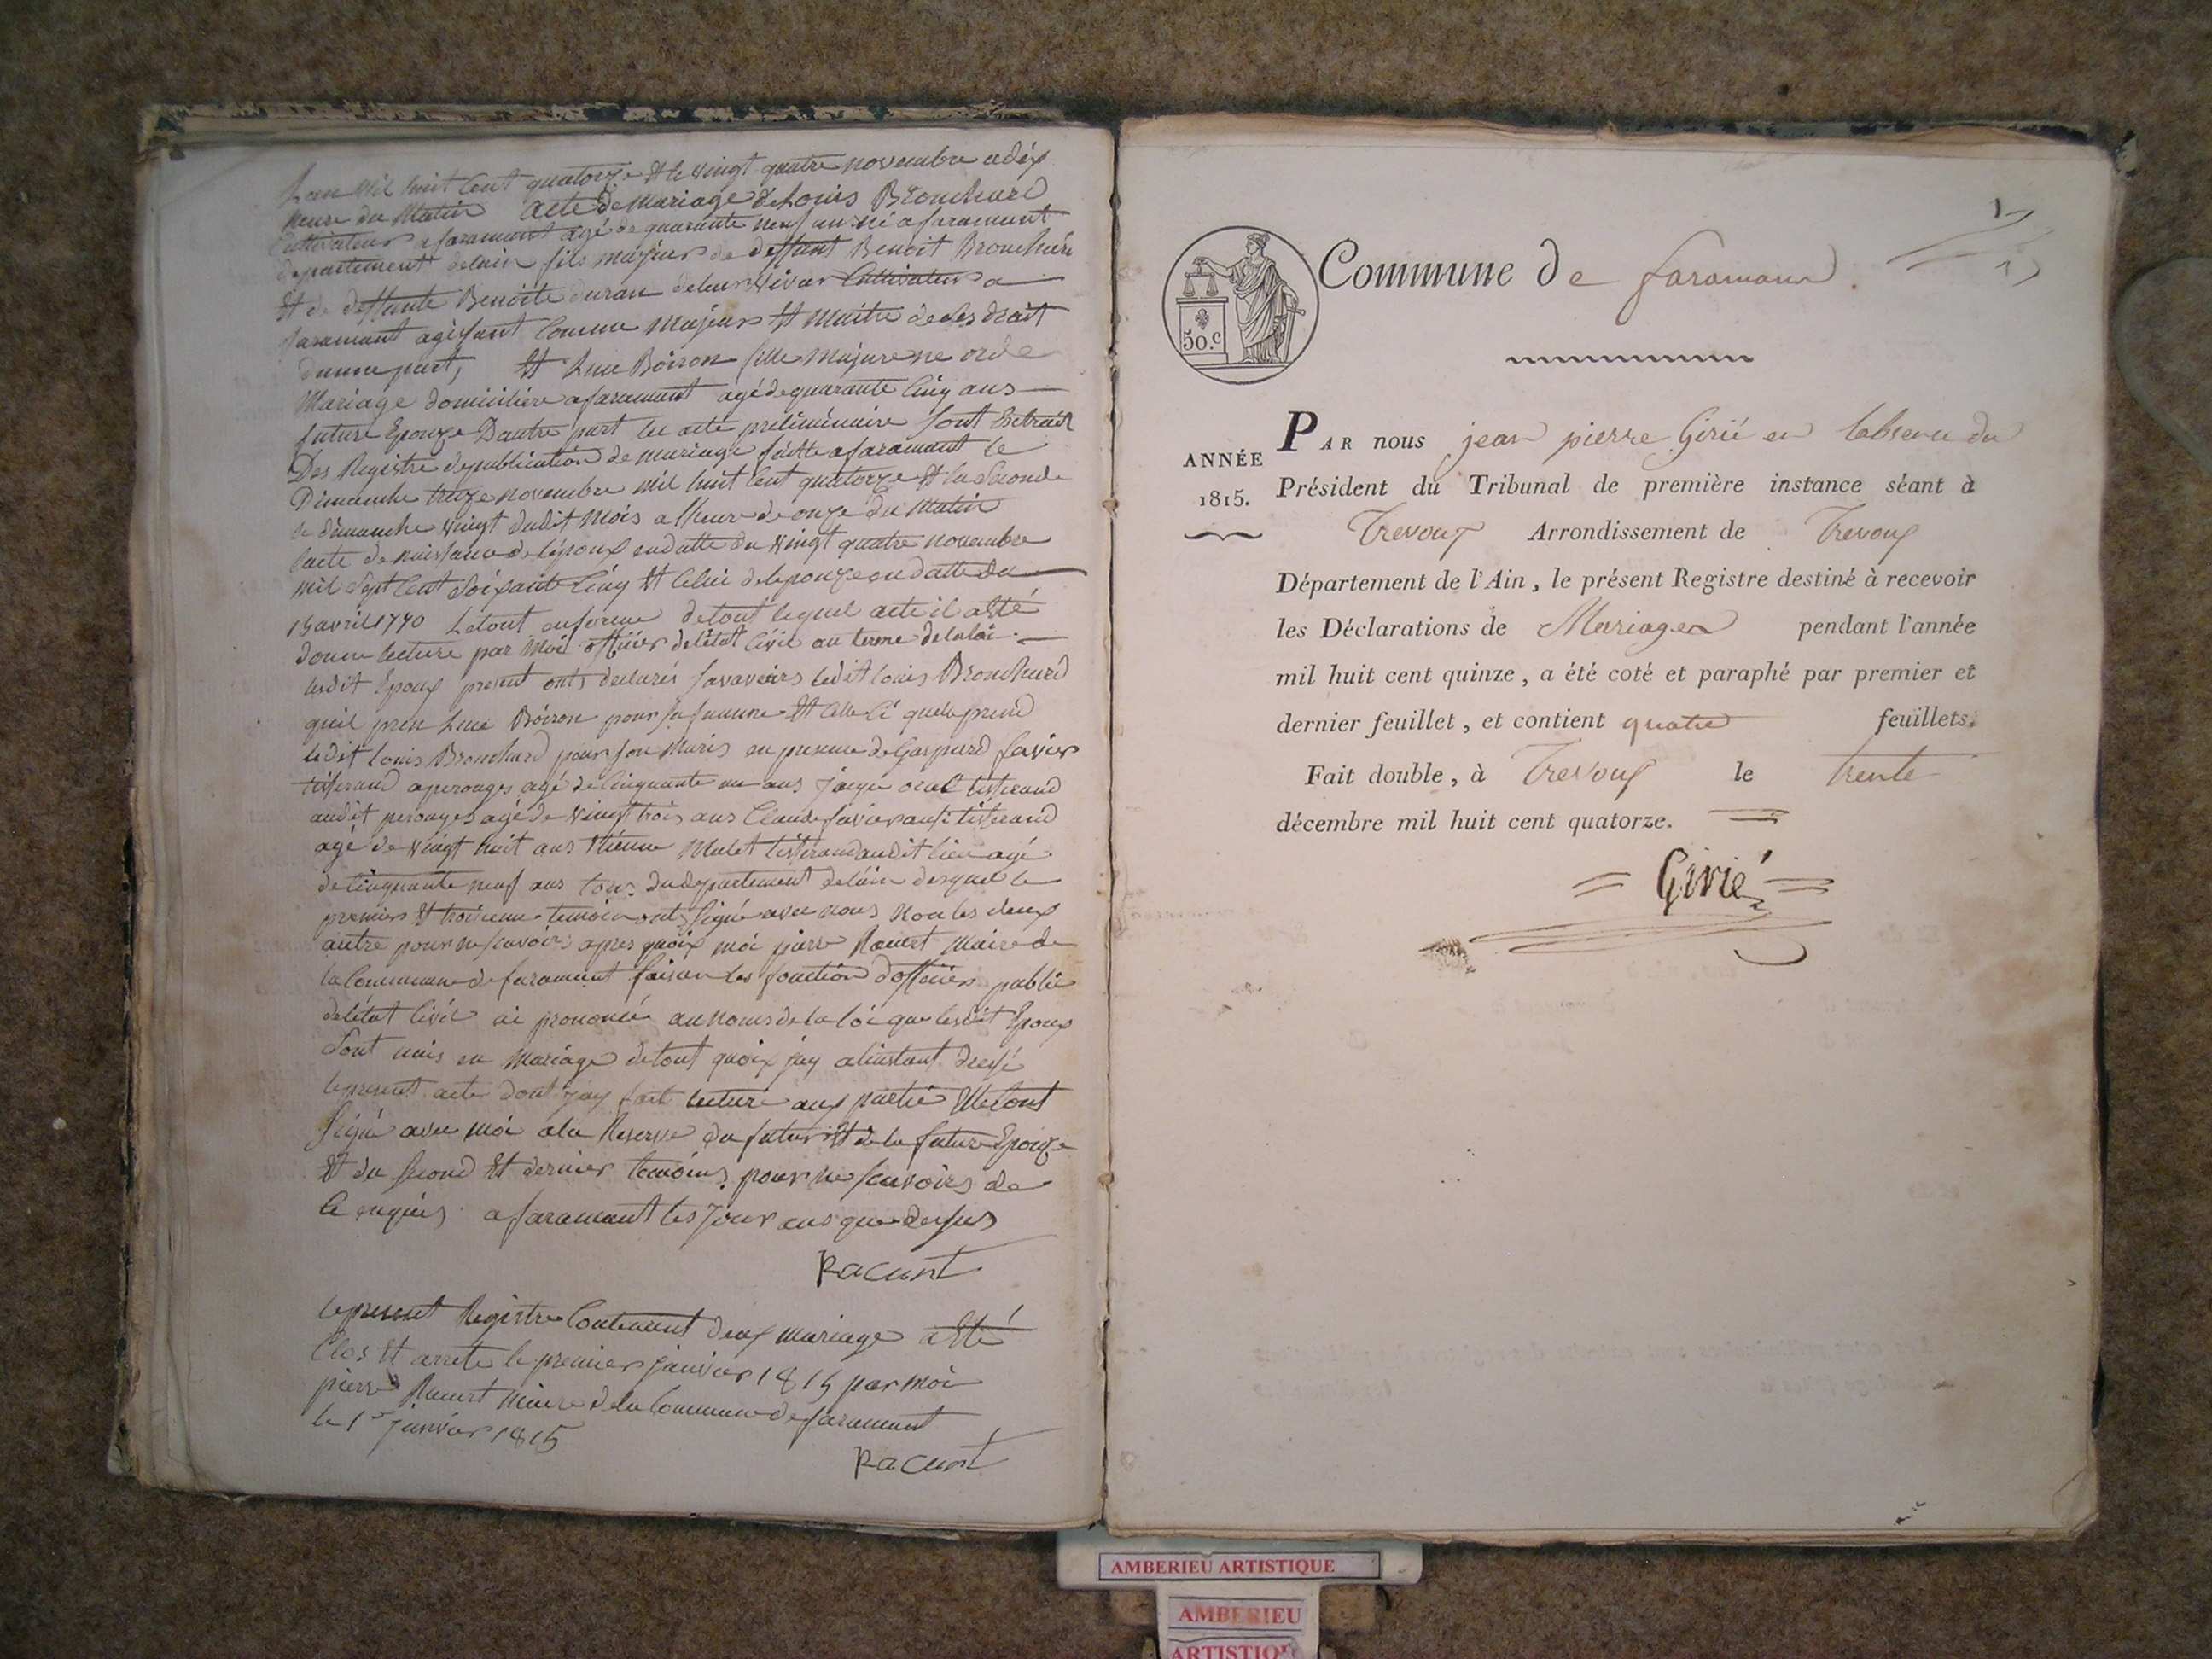 Lan Mil huit Cent quatorze Et le vingt quatre novembre a dix
heure du Matin acte de Mariage de Louis Bronchard
Cultivateur a faramant agé de quarante neuf an né a faramant
departement delain fils majeur de deffant Benoit Bronchard
Et de deffante Benoite duran deleur vivar Cultivateur a
faramant agissant Comme Majeur Et Maitre de ses droit
dunne part, Et Luce Boiron fille Majure ne
Mariage domiciliére a faramant agé de quarante Cinq ans
future Epouze Dautre part les acte preliminaire sont Extrait
Des Registre de publication de mariage faitte a faramant le
Dimanche treize novembre mil huit Cent quatorze Et la Seconde
le dimanche vingt dudit mois a lheure de onze du Matin
lacte de naissance de lépoux en datte du vingt quatre novembre
mil sept Cent Soixante Cinq Et Celui de lepouze en datte du
15 avril 1770 Le tout en forme de tout lequel acte il a été
donne lecture par Moi officier de létat Civil au terme de la loi
lesdit Epoux present ont declarés savavoirs ledit louis Bronchard
quil pren Luce Boiron pour sa famme Et Celle Ci quele prend
ledit louis Bronchard pour son Maris en presence de Gaspard favier
tisserand a perouges agé de Cinquante un ans Jaque tisserand
audit perouges agé de vingt trois ans Claude favier ausi tisserand
agé de vingt huit ans Etienne Mulet tisserand audit lieu agé
de Cinquante neuf ans tous du departement de lain desquel le
premier Et troisieme temoin ont Signé avec nous Non les deux
autre pour ne savoir apres quoix moi pierre Racurt Maire de
la Commune de faramant faisan les fonction dofficier public
de létat Civil ai prononcé au noms de la loi que lesdit Epoux
Sont unis en Mariage de tout quoix jay a linstant dressé
le present acte dont jay fait lecture aux partie Elle sont
Signé avec moi a la Reserve du futur Et de la future Epouze
Et du second Et dernier temoins pour ne savoirs de
Ce enquis a faramant les Jour ans que dessus
Racurt
le present Registre Contenant deux mariage a Eté
Clos Et arrete le premier janvier 1815 par moi
pierre Racurt Maire de la Commune de faramant
le 1er Janvier 1815
Racurt
1
Commune de faramans.
50.c
ANNÉE
1815.
PAR nous jean pierre Girié en labsence du
Président du Tribunal de première instance séant à
Trevoux Arrondissement de Trevoux
Département de l'Ain, le présent Registre destiné à recevoir
les Déclarations de Mariages pendant l'année
mil huit cent quinze, a été coté et paraphé par premier et
dernier feuillet, et contient quatre feuillets.
Fait double, à Trevoux le trente
décembre mil huit cent quatorze.
Girié
AMBERIEU ARTISTIQUE
AMBERIEU
ARTISTIQUE